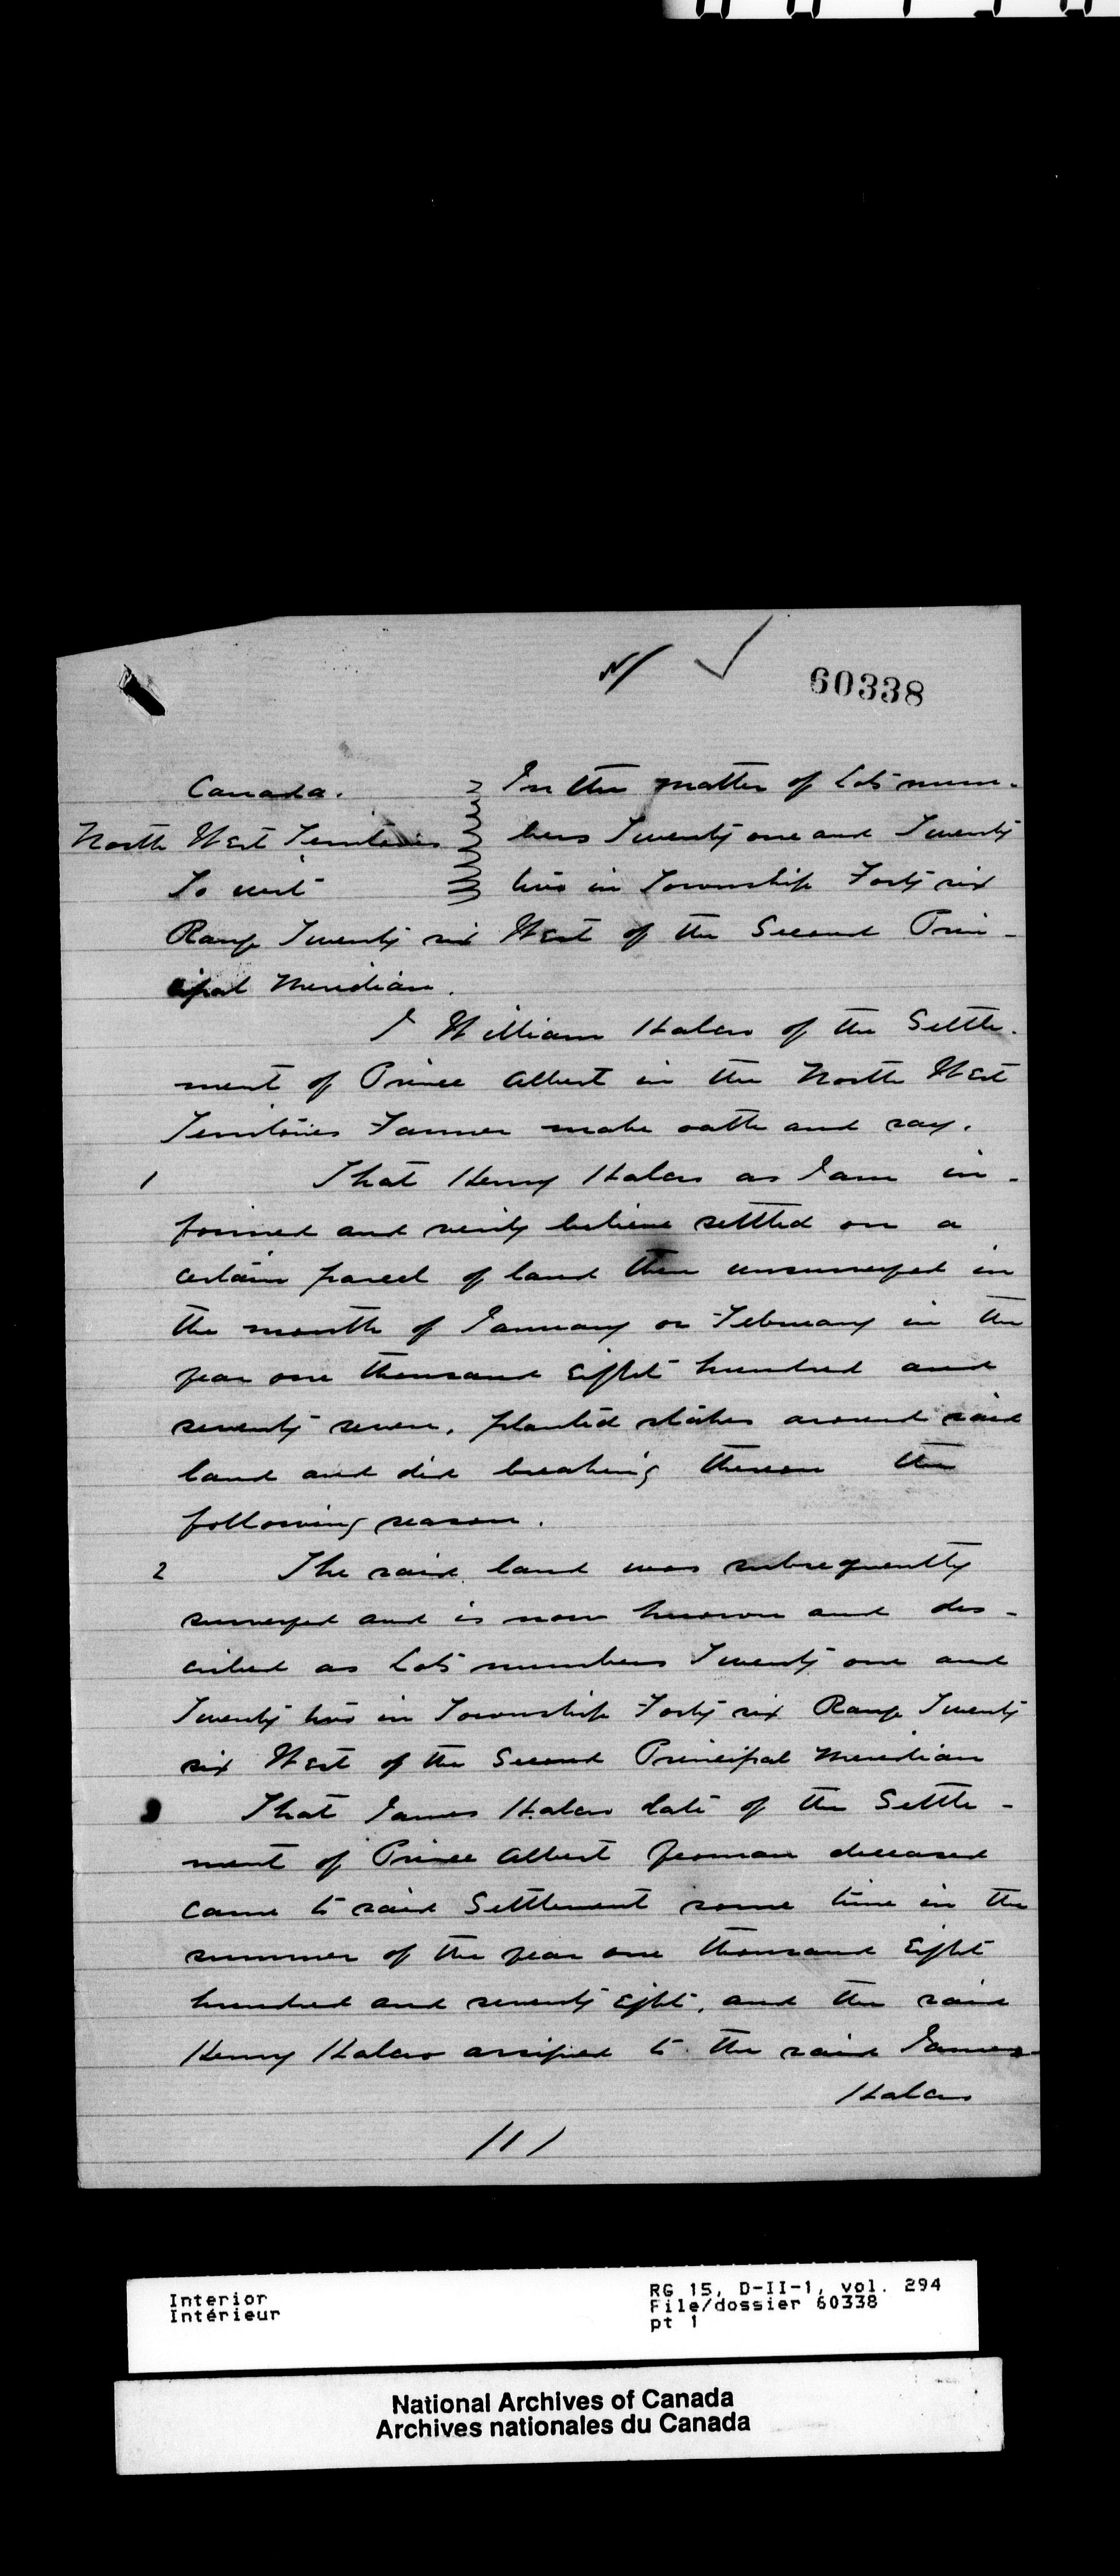 60338
Canada. In the matter of Lots num-
North West Territories bers Twenty one and Twenty
To wit two in Township Forty six
Range Twenty six West of the Second Prin-
cipal Meridian.
I William Halcro of the Settle-
ment of Prince Albert in the North West
Territories Farmer make oath and say.
1 That Henry Halcro as I am in-
formed and verily believe settled on a
certain parcel of land then unsurveyed in
the month of January or February in the
year one thousand Eight hundred and
seventy seven, planted stakes around said
land and did breaking thereon the
following season.
2 The said land was subsequently
surveyed and is now known and des-
cribed as Lots numbers Twenty one and
Twenty two in Township Forty six Range Twenty
six West of the Second Principal Meridian
3 That James Halcro late of the Settle-
ment of Prince Albert Yeoman deceased
came to said Settlement some time in the
summer of the year one thousand Eight
hundred and seventy Eight, and the said
Henry Halcro assigned to the said James
Halcro
/1/
Interior RG 15, D-II-1, vol. 294
Intérieur File/dossier 60338
pt 1
National Archives of Canada
Archives nationales du Canada